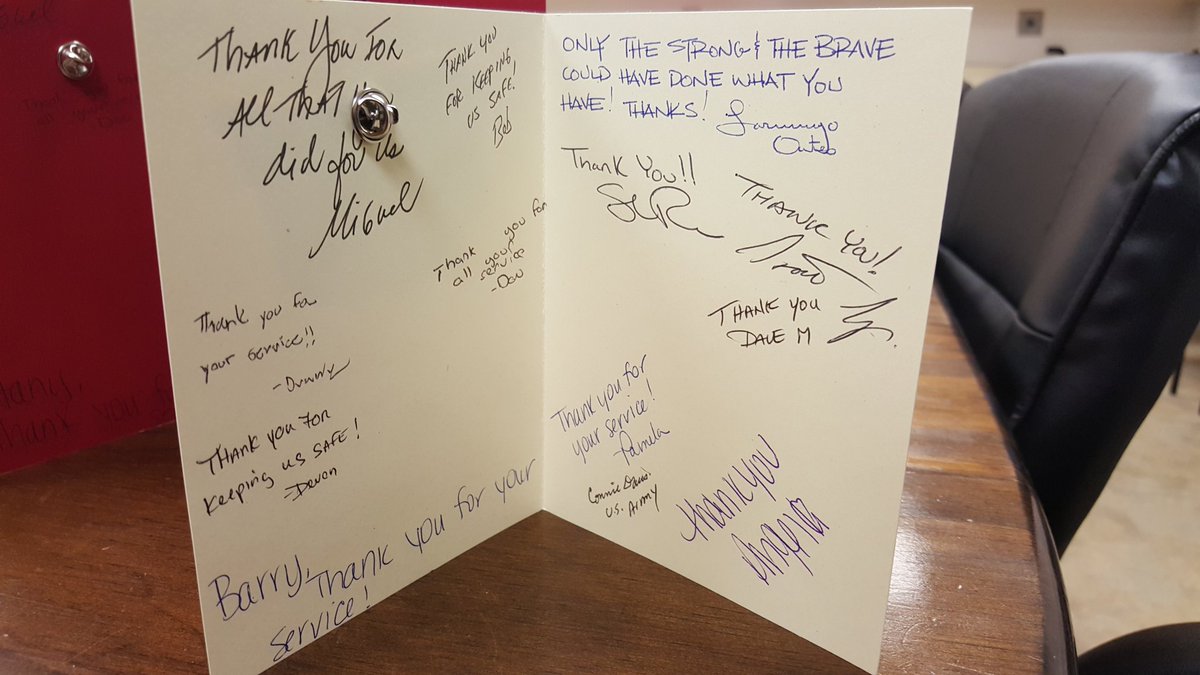 Thank You For
All THAT
did for us
Miguel
Thank you
for keeping
us safe!
Bob
Thank you for
all your
service
-Don
Thank you for
your service!!
-Danny
Thank you for
keeping us safe!
-Devon
Barry, Thank you for your
service!
ONLY THE STRONG & THE BRAVE
COULD HAVE DONE WHAT YOU
HAVE! THANKS!
Thank You!!
THANK YOU!
THANK YOU
DALE M
Thank you for
your service!
Pamela
Connie Davis
U.S. Army
Thank you
Angela